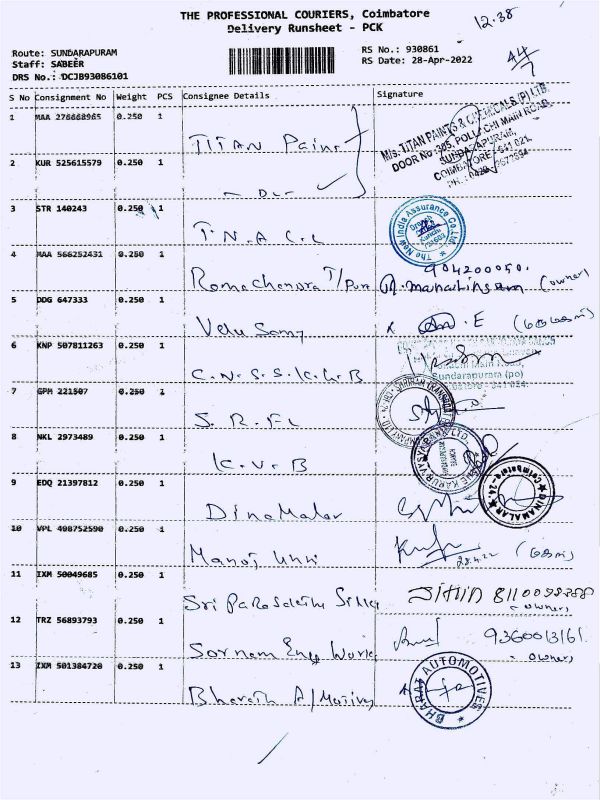 THE PROFESSIONAL COURIERS, Coimbatore
Delivery Runsheet - PCK
12.38
Route: SUNDARAPURAM
Staff: SABEER
DRS No.: DCJB93086101
RS No.: 930861
RS Date: 28-Apr-2022
S No Consignment No Weight PCS Consignee Details Signature
1 MAA 276668965 0.250 1 TITAN Paint
M/s. TITAN PAINTS & CHEMICALS (P) LTD.
DOOR No. 305, POLLACHI MAIN ROAD
SUNDARAPURAM,
COIMBATORE - 641 021.
2 KUR 525615579 0.250 1 - Do -
3 STR 140243 0.250 1 T.N.A.C.L
The New India Assurance Co. Ltd.
4 MAA 566252431 0.250 1 Ramachandra T/Pura
(owner)
5 DDG 647333 0.250 1 Velu Samy
6 KNP 507811263 0.250 1 C.N.S.S.K.G.B
Sundarapuram (po)
7 GPM 221507 0.250 1 S.R.F.L
8 NKL 2973489 0.250 1 K.V.B
9 EDQ 21397812 0.250 1 Dinamalar
DINAMALAR Coimbatore - 24
10 VPL 408752590 0.250 1 Manoj Unni
28.4.22
11 IXM 50049685 0.250 1
(owner)
12 TRZ 56893793 0.250 1 Sornam Engg Works
9360013161
owner)
13 IXM 501384720 0.250 1 Bharath A/Motives
BHARAT AUTOMOTIVES